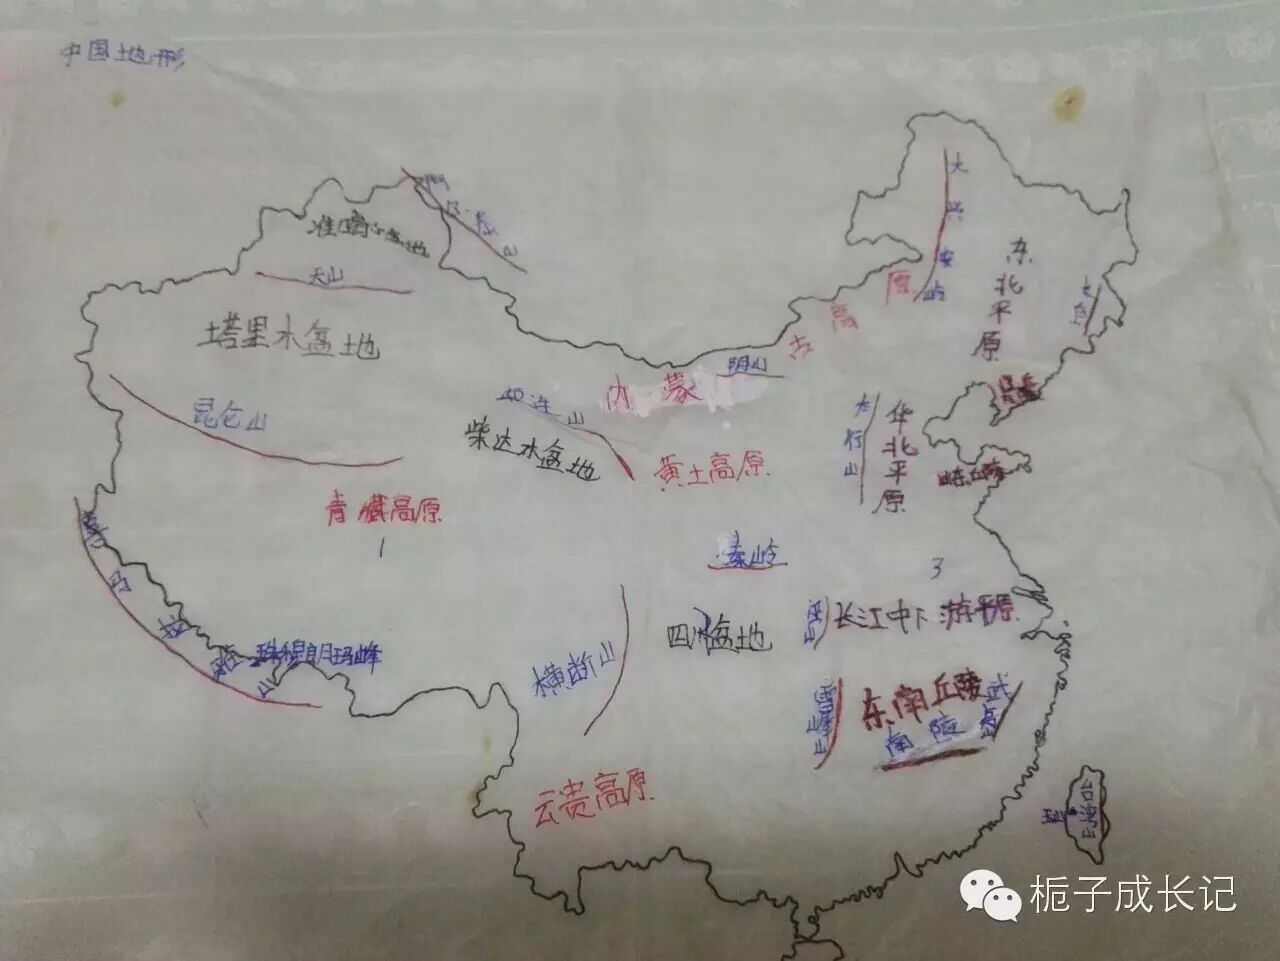 中国地形
大兴安岭
准噶尔盆地
天山
东北平原
内蒙古高原
塔里木盆地
阴山
昆仑山
祁连山
柴达木盆地
太行山
华北平原
黄土高原
青藏高原
1
秦岭
3
巫山
长江中下游平原
四川盆地
珠穆朗玛峰
横断山
雪峰山
东南丘陵
南陵
云贵高原
台湾山
栀子成长记